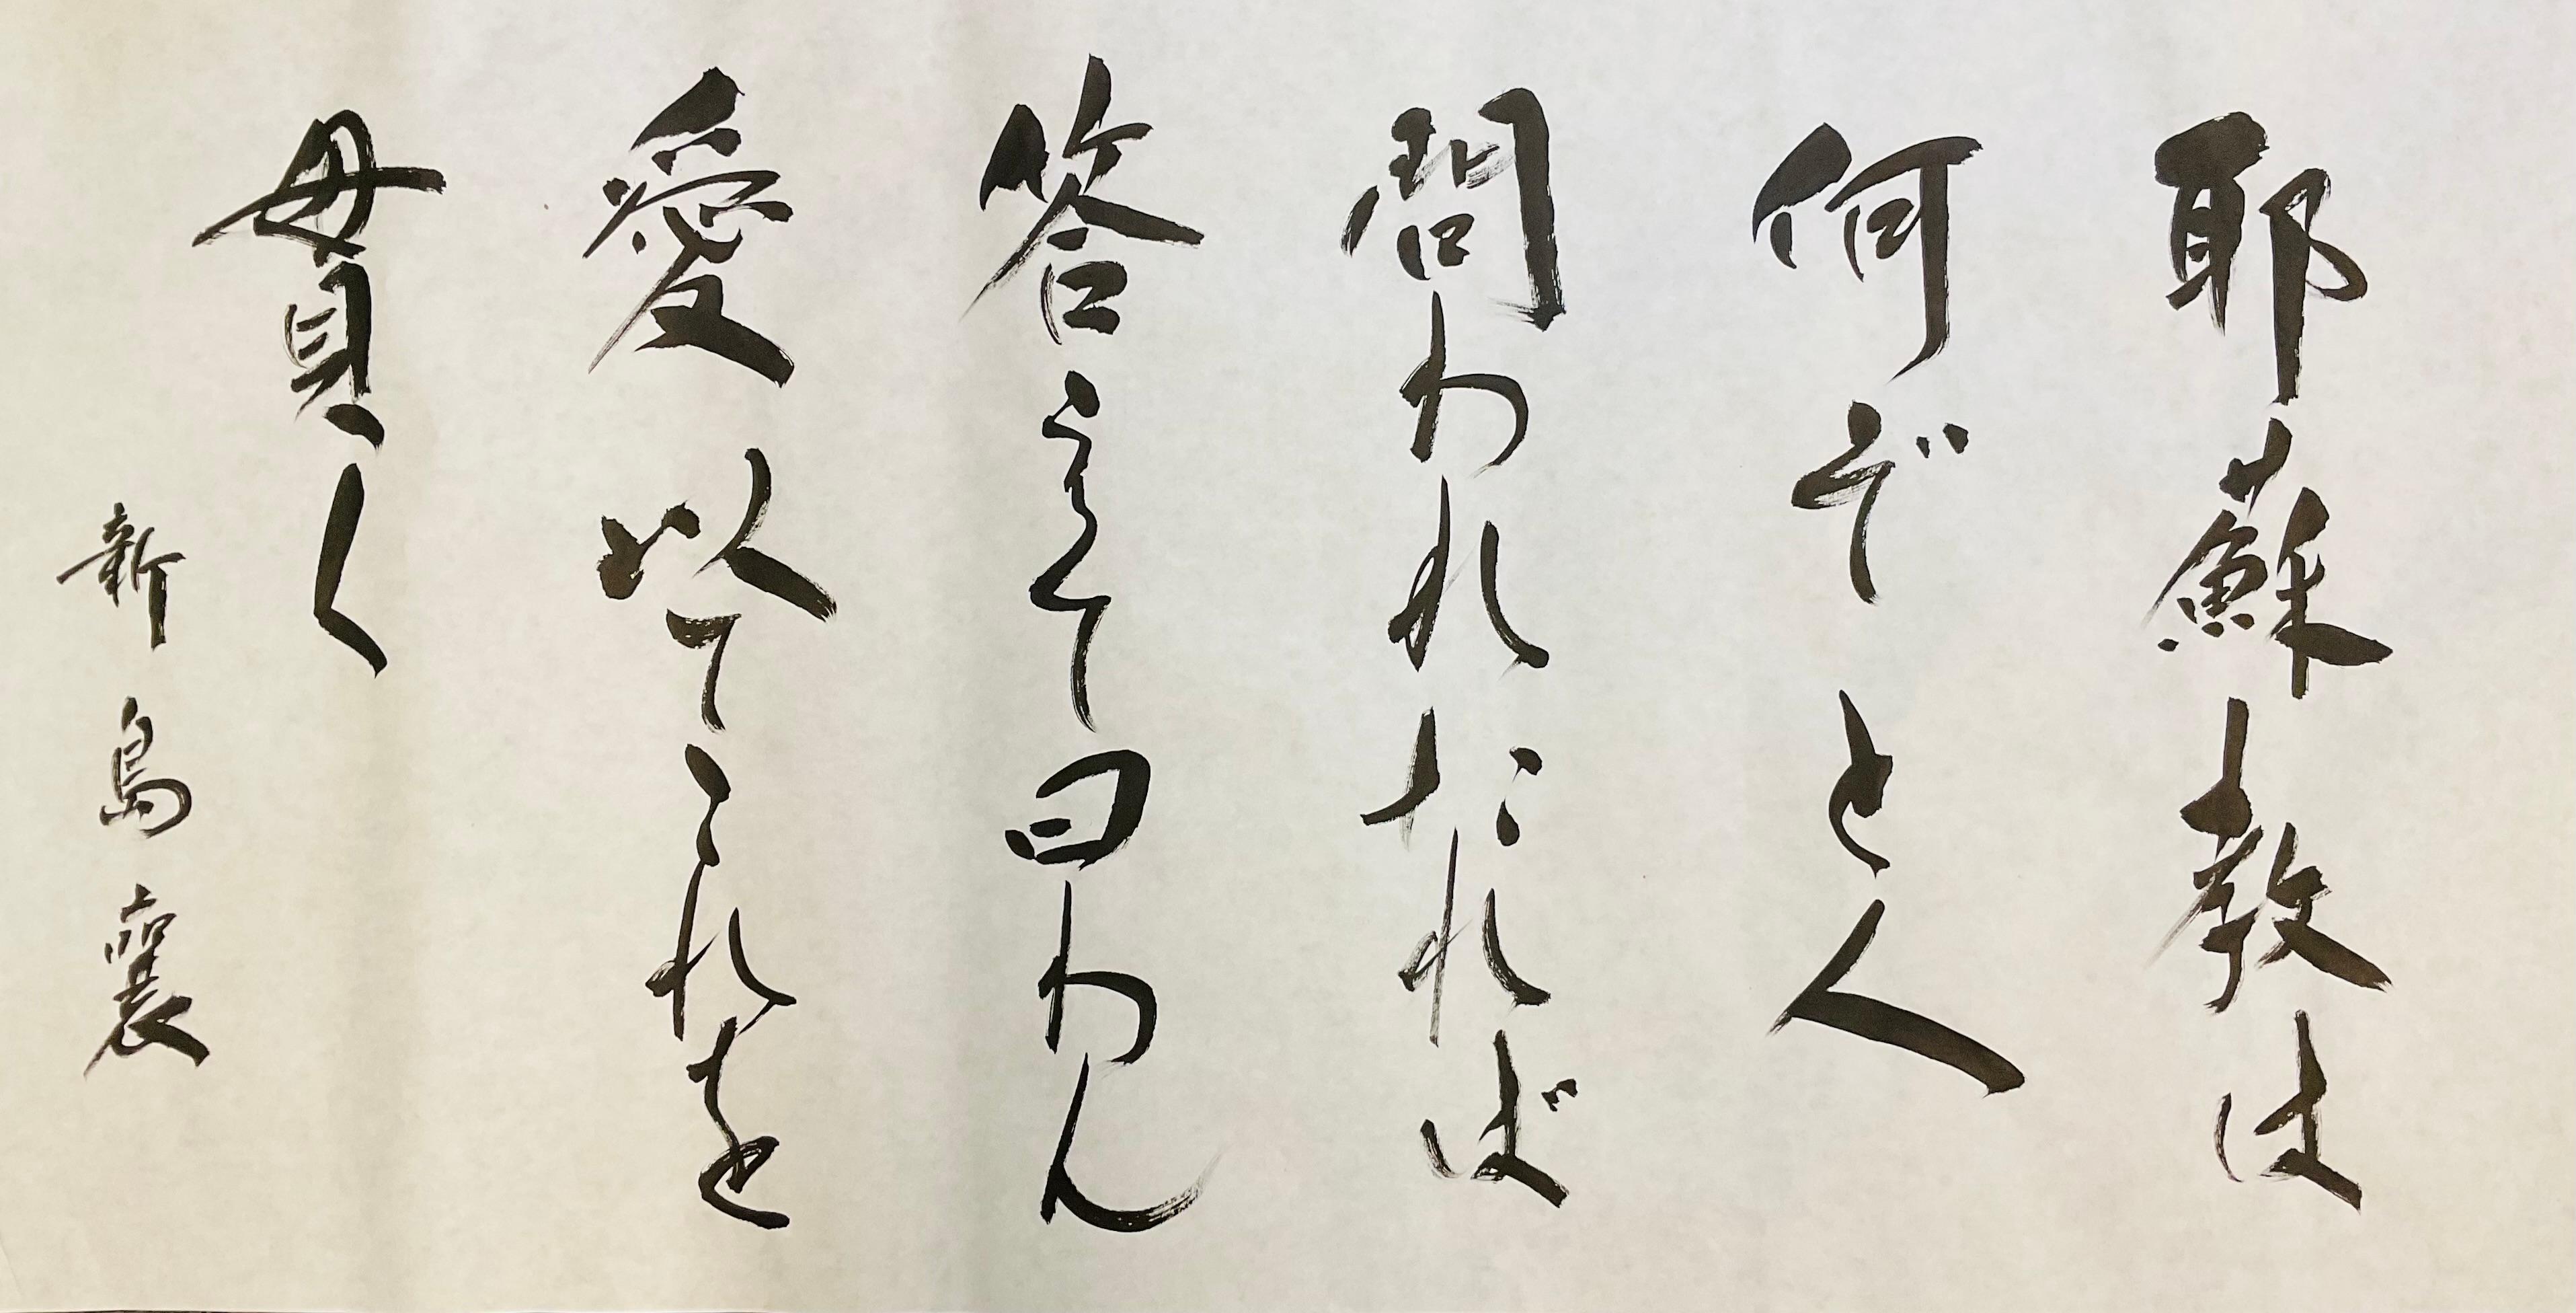 耶蘇教は
何ぞと人
問われたれば
答えて曰わん
愛以てこれを
貫く
新島襄